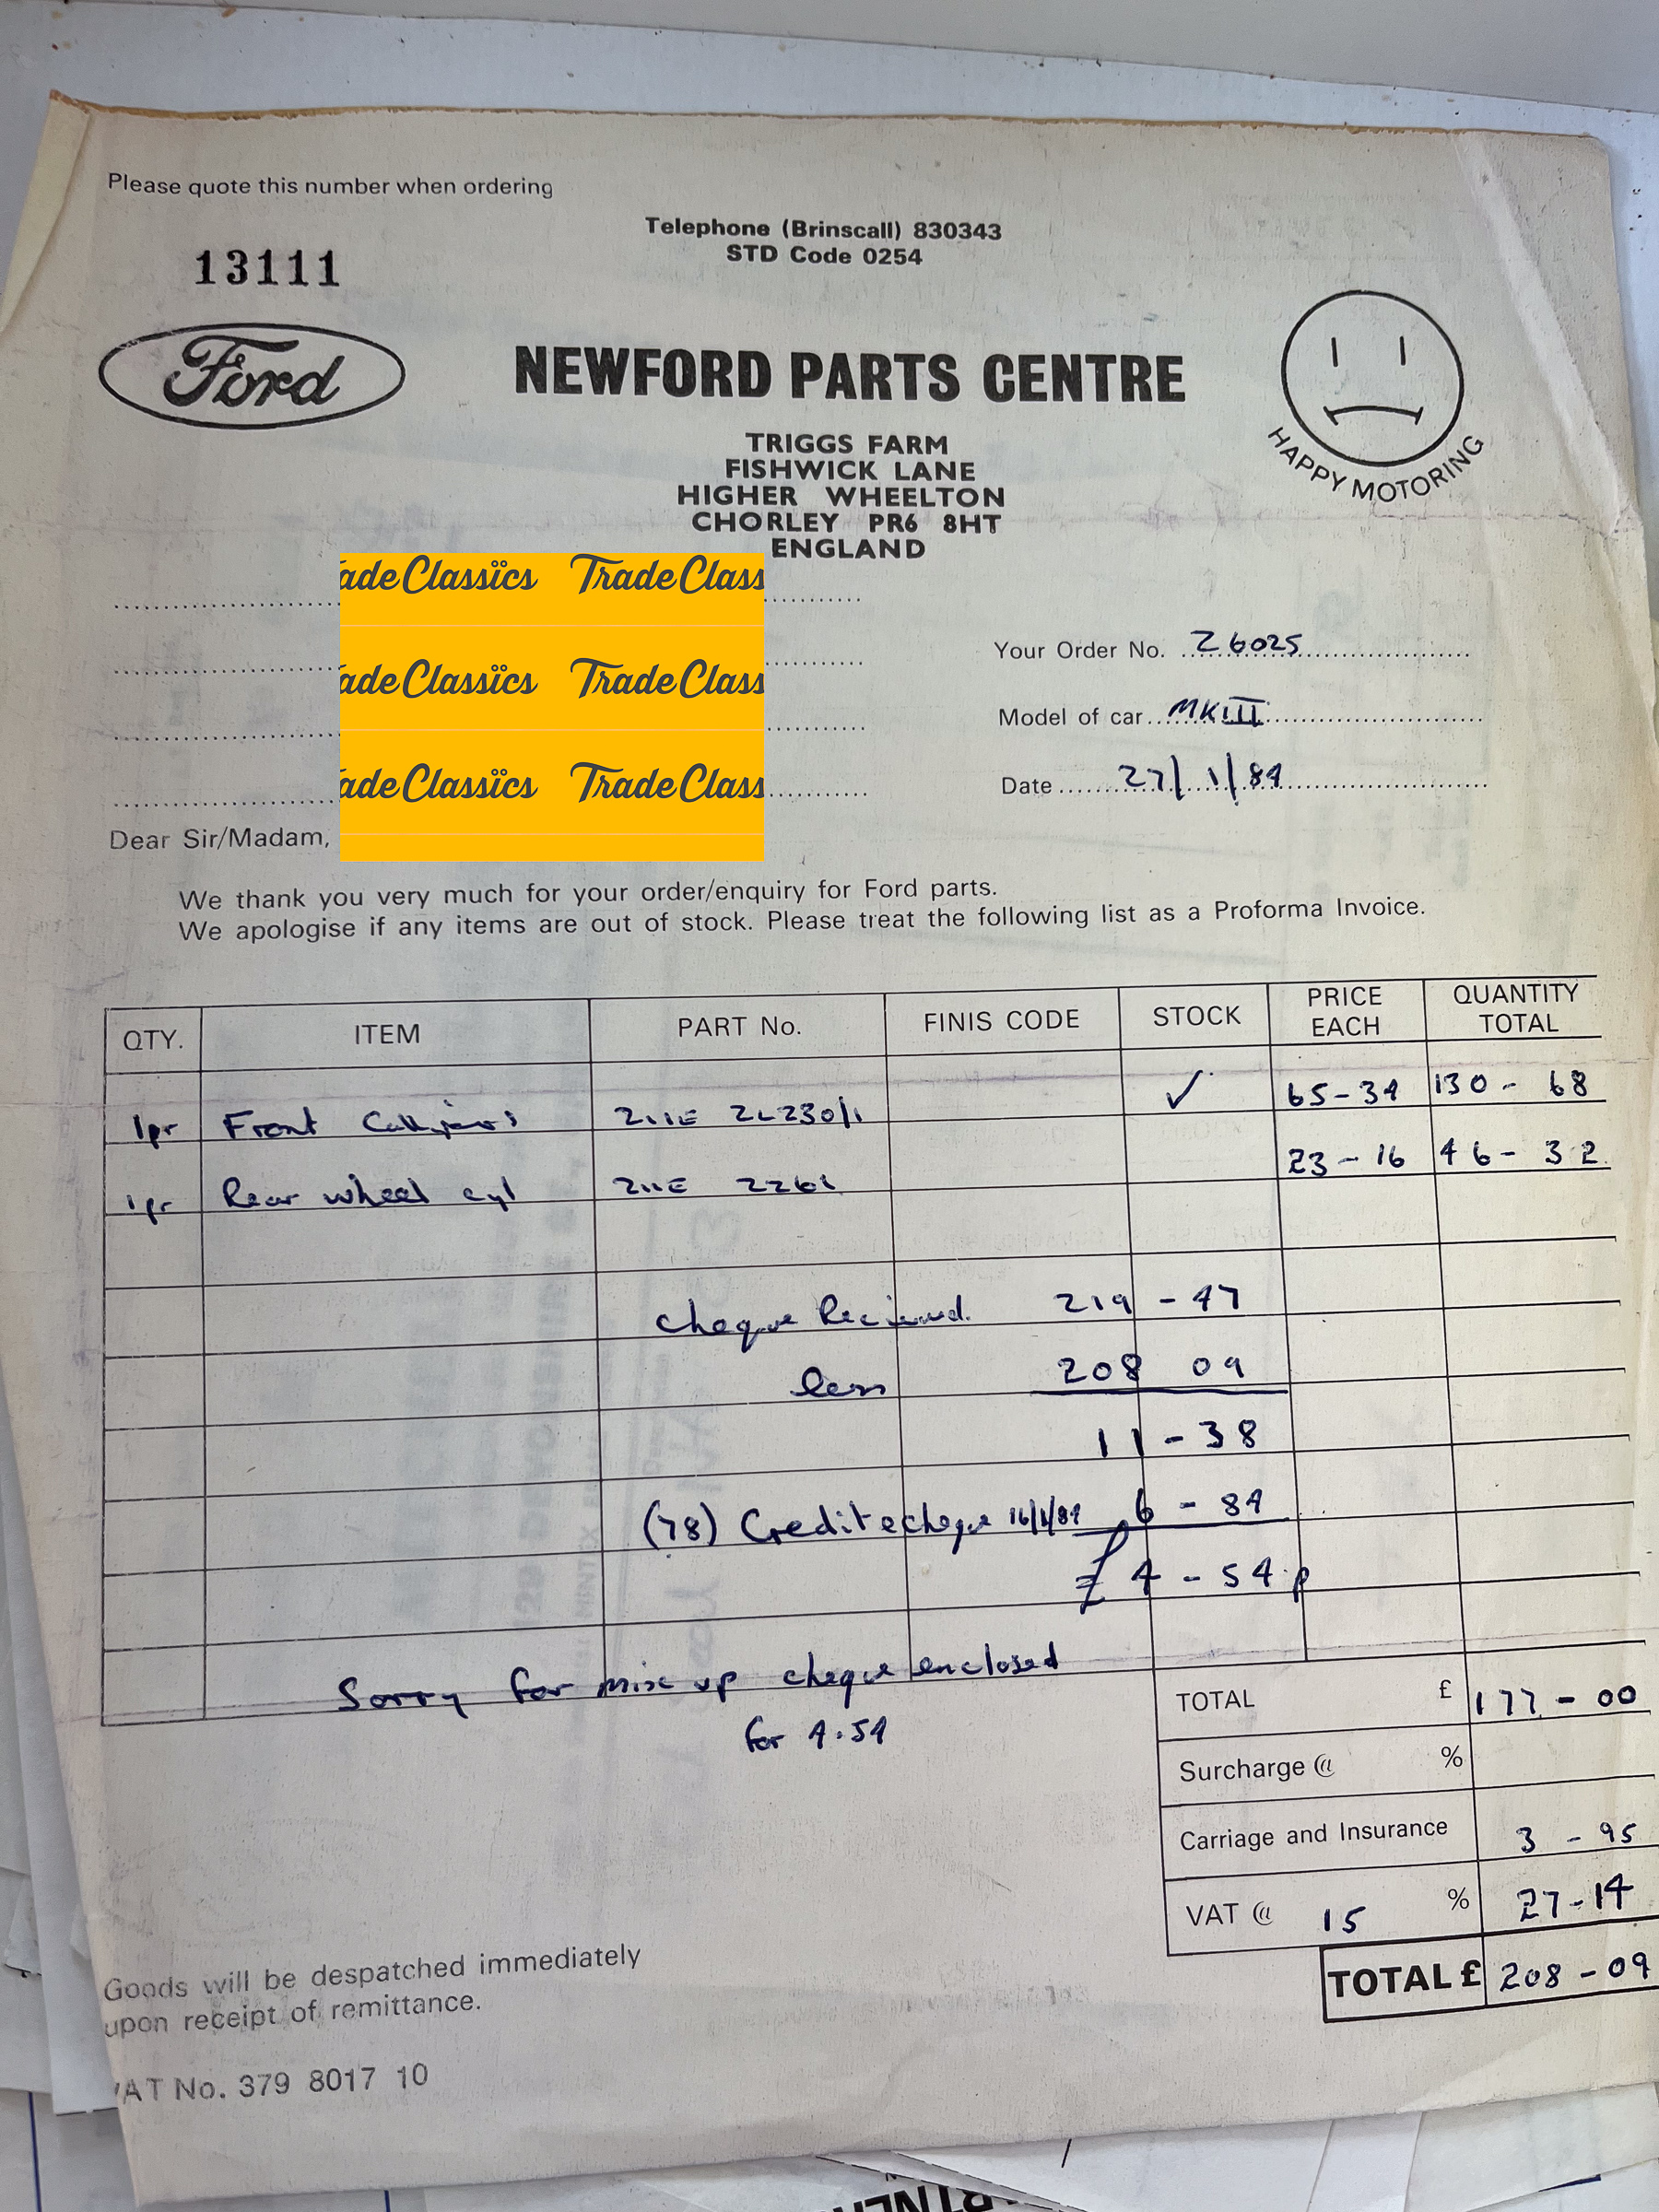 Please quote this number when ordering
Telephone (Brinscall) 830343
STD Code 0254
13111
Ford
NEWFORD PARTS CENTRE
HAPPY MOTORING
TRIGGS FARM
FISHWICK LANE
HIGHER WHEELTON
CHORLEY PR6 8HT
ENGLAND
ade Classics Trade Class
ade Classics Trade Class
ade Classics Trade Class
Your Order No. Z6025
Model of car MKIII
Date 27/1/84
Dear Sir/Madam,
We thank you very much for your order/enquiry for Ford parts.
We apologise if any items are out of stock. Please treat the following list as a Proforma Invoice.
QTY. ITEM PART No. FINIS CODE STOCK PRICE EACH QUANTITY TOTAL
1pr Front 211E 2L230/1 ✓ 65-34 130-68
1pr Rear wheel cyl 211E 2261 23-16 46-32
cheque Recieved. 219-47
less 208 09
11-38
(78) Credit cheque 16/1/84 6-84
£4-54p
Sorry for mix up cheque enclosed
for 4.54
TOTAL £ 177-00
Surcharge @ %
Carriage and Insurance 3-95
VAT @ 15 % 27-14
TOTAL £ 208-09
Goods will be despatched immediately
upon receipt of remittance.
VAT No. 379 8017 10